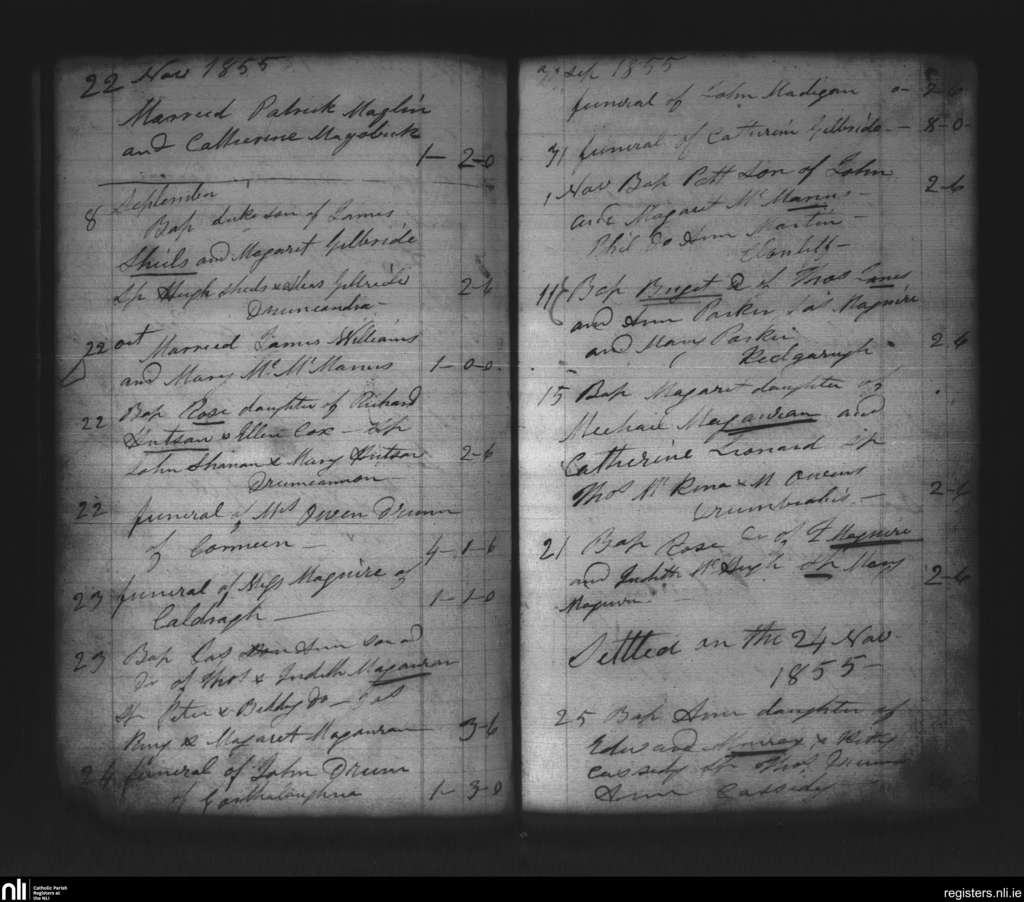 22 Nov 1855
Married Patrick Maglin
and Catherine
1- 2-0
8 September
Bap Luke son of James
Shiels and Magaret Gilbride
Sp Hugh Shiels & Gilbride 2-6
22 oct Married James Williams
and Mary Mc McManus 1-0-0
22 Bap Rose daughter of Richard
Hutson & Ellen Cox - Sp
John Shanan & Mary Hutson 2-6
Drumcannon
22 funeral of Owen Drumm
of Corneen - 4-1-6
23 funeral of Maguire of
Caldragh - 1-1-0
23 Bap Ann son ad
Dr of Thos & Judith Magauran
Sp Peter & Biddy do -
& Magaret Magauran 3-6
24 funeral of John Drum
of 1-3-0
Sep 1855
funeral of John Madigan 2-6
31 funeral of Catherin Gilbride - 8-0-
1 Nov Bap Patt Son of John
and Magaret McManus - 2-6
Phil do Ann Martin
11 Bap Briget D of Thos
and Ann Parker Pat Maguire
and Mary Parker 2-6
15 Bap Magaret daughter of
Michael Magauran and
Catherine Lionard Sp
Thos & M Owens 2-6
21 Bap Rose Dr of Maguire
and Judith McHugh Sp Mary 2-6
Maguire
Settled on the 24 Nov
1855-
25 Bap Ann daughter of
Edward Murray & Kitty
Cassidy Sp Thos
Ann Cassidy
nli
Catholic Parish
Registers at
the NLI
registers.nli.ie